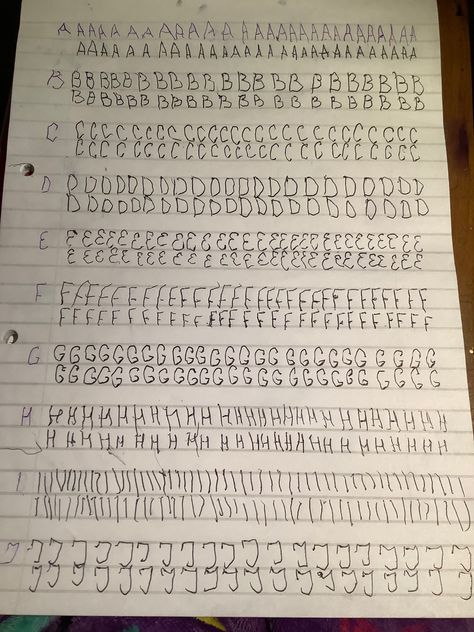 A A A A A A A A A A A A A A A A A A A A A A A A A A
A A A A A A A A A A A A A A A A A A A A A A A A A
B B B B B B B B B B B B B B B B B B B B B B B B B
B B B B B B B B B B B B B B B B B B B B B B B B
C C C C C C C C C C C C C C C C C C C C C C C C C C
C C C C C C C C C C C C C C C C C C C C C C C C C
D D D D D D D D D D D D D D D D D D D D D D D D D
D D D D D D D D D D D D D D D D D D D D D D D D
E E E E E E E E E E E E E E E E E E E E E E E E E E
E E E E E E E E E E E E E E E E E E E E E E E E E
F F F F F F F F F F F F F F F F F F F F F F F F F F
F F F F F F F F F F F F F F F F F F F F F F F F F
G G G G G G G G G G G G G G G G G G G G G G G G G
G G G G G G G G G G G G G G G G G G G G G G G G
H H H H H H H H H H H H H H H H H H H H H H H H H H
H H H H H H H H H H H H H H H H H H H H H H H H H
I I I I I I I I I I I I I I I I I I I I I I I I I I I I I I I I I I I I I I I I I I I I I
I I I I I I I I I I I I I I I I I I I I I I I I I I I I I I I I I I I I I I I I I I I I
J J J J J J J J J J J J J J J J J J J J J
J J J J J J J J J J J J J J J J J J J J